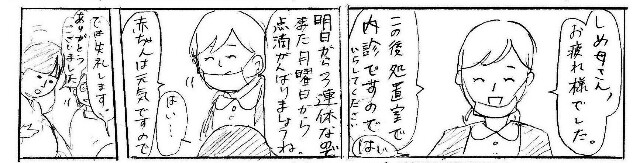 しめ母さん、
お疲れ様でした。
この後処置室で
内診ですので
いらしてください
はい
明日から3連休なので
また月曜日から
点滴がんばりましょうね。
赤ちゃんは元気ですので
はい…
では失礼します。
ありがとう
ございました